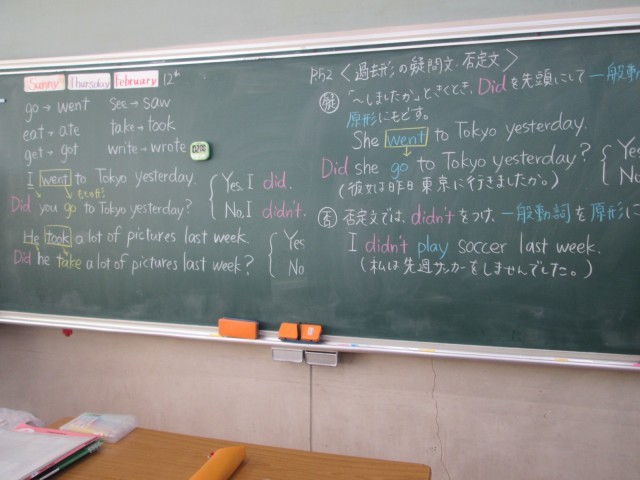 Sunny Thursday February 12th
go → went see → saw
eat → ate take → took
get → got write → wrote
I went to Tokyo yesterday.
もとの形
Did you go to Tokyo yesterday?
Yes, I did.
No, I didn't.
He took a lot of pictures last week.
Did he take a lot of pictures last week?
Yes
No
P.52 〈過去形の疑問文・否定文〉
「〜しましたか」ときくとき、Didを先頭にして一般動
原形にもどす。
She went to Tokyo yesterday.
Did she go to Tokyo yesterday?
Yes
No
(彼女は昨日東京に行きましたか。)
否 否定文では、didn'tをつけ、一般動詞を原形に
I didn't play soccer last week.
(私は先週サッカーをしませんでした。)